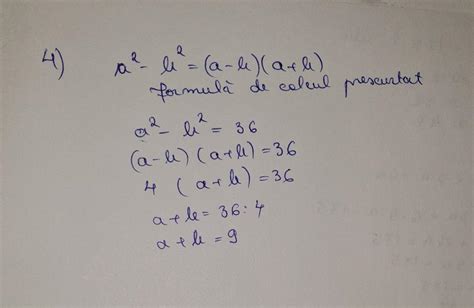 4) a² - b² = (a-b)(a+b)
formulă de calcul prescurtat
a² - b² = 36
(a-b)(a+b) = 36
4 (a+b) = 36
a+b = 36 : 4
a+b = 9